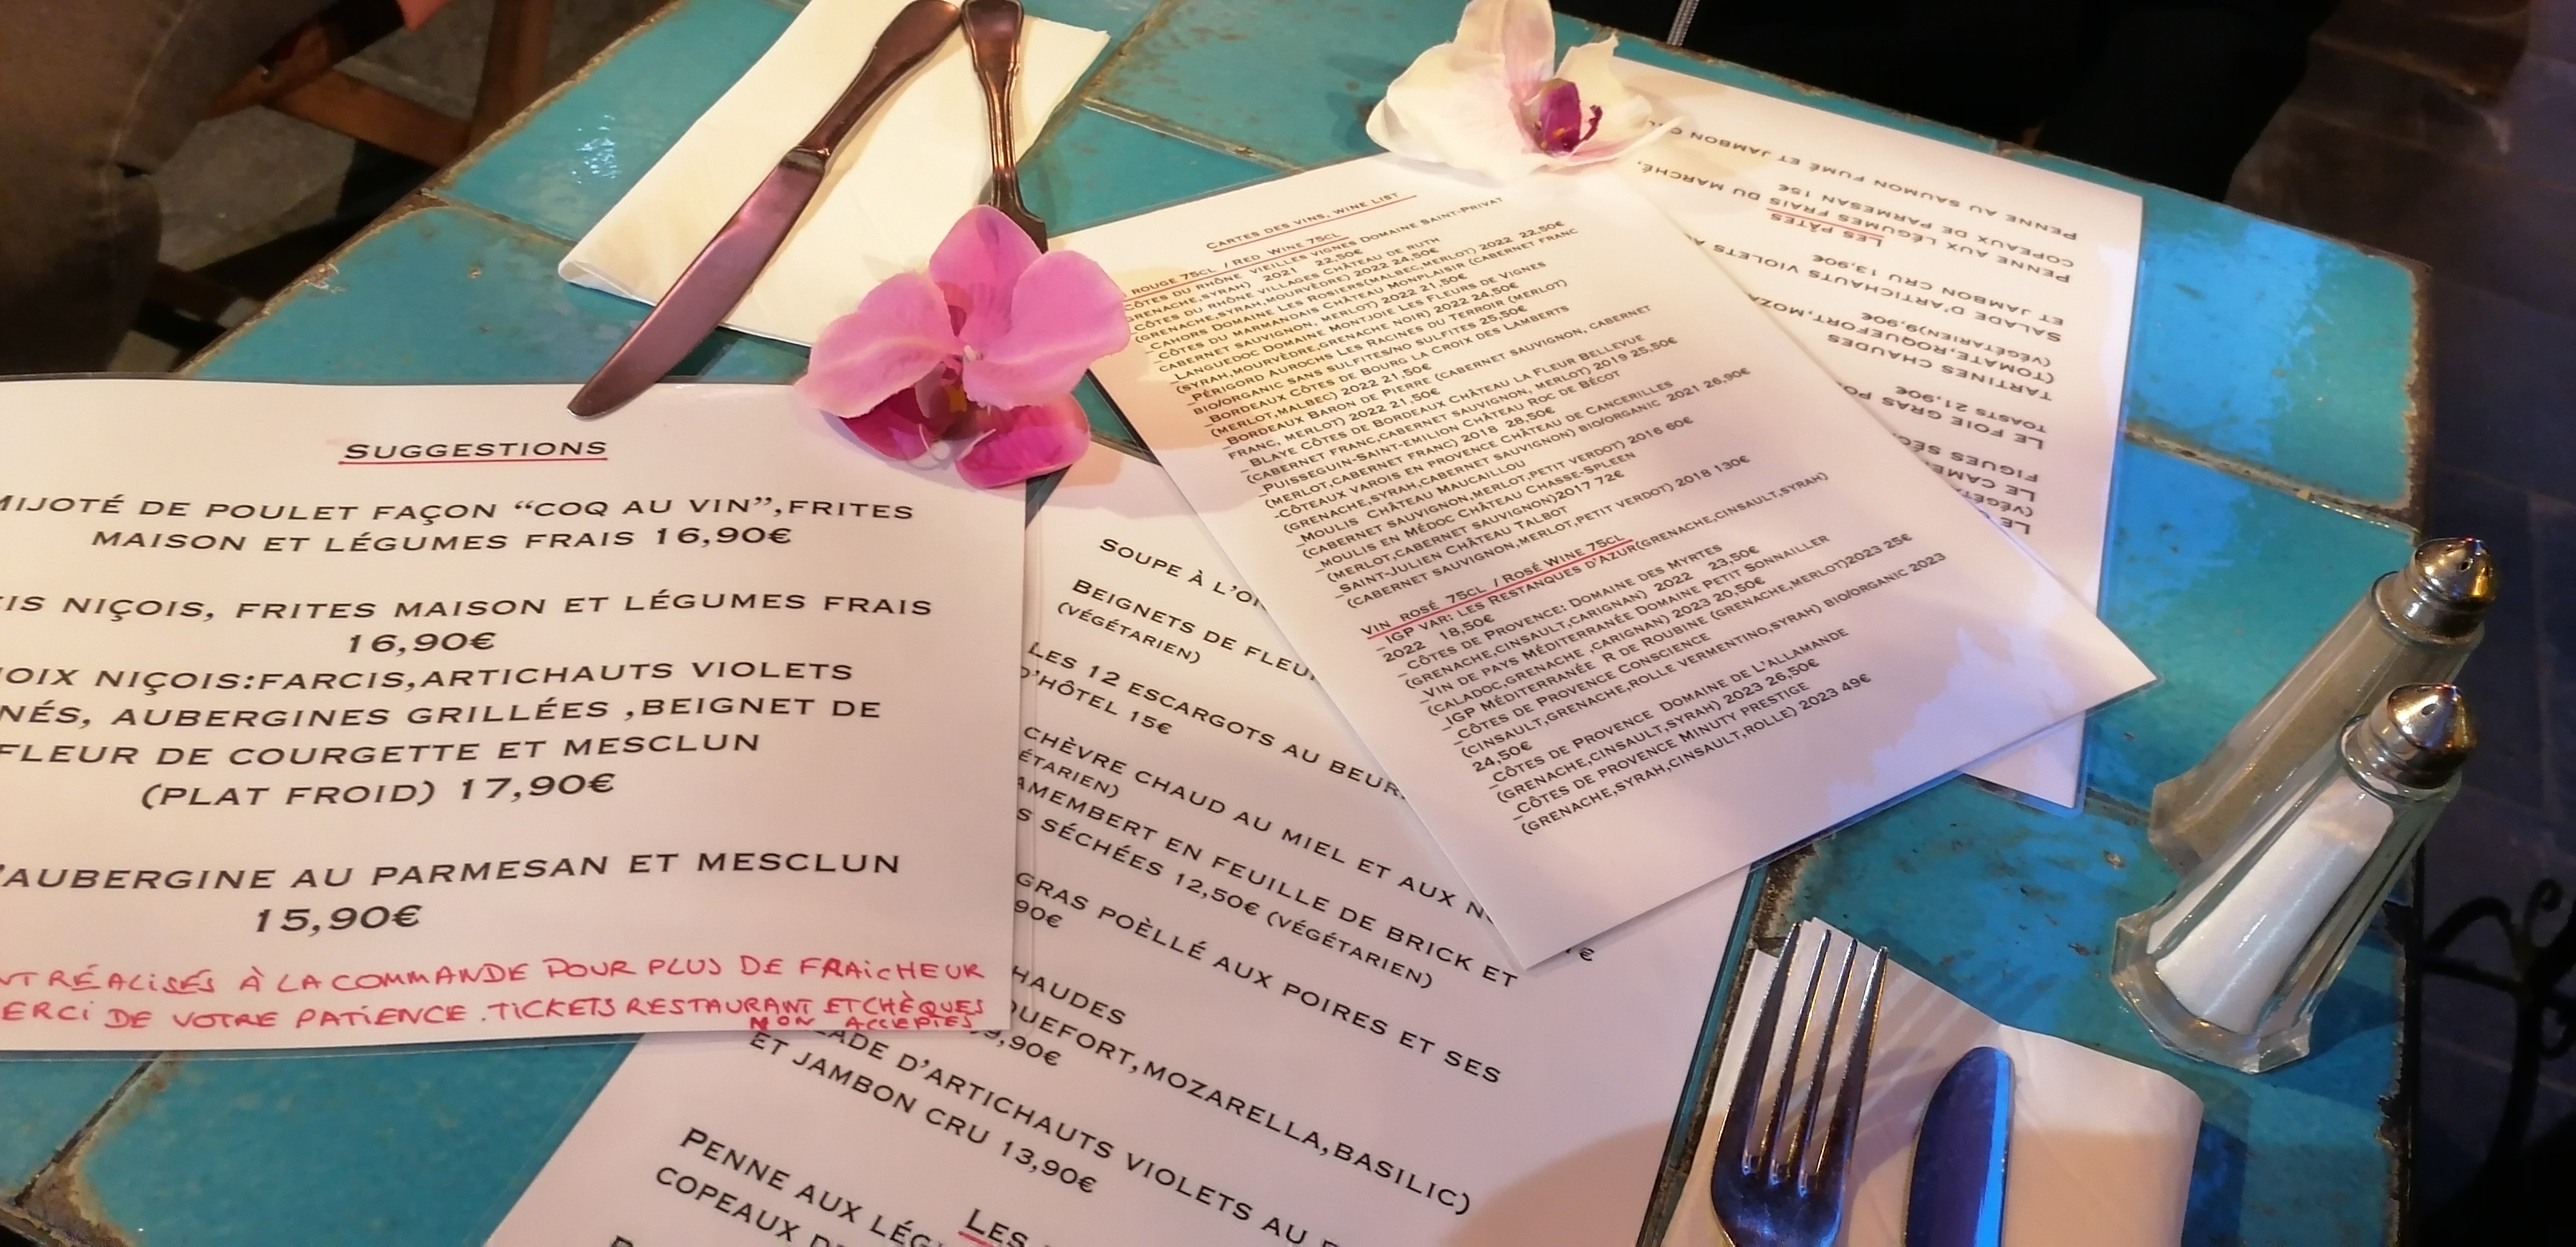 SUGGESTIONS
MIJOTÉ DE POULET FAÇON “COQ AU VIN”,FRITES
MAISON ET LÉGUMES FRAIS 16,90€
NIÇOIS, FRITES MAISON ET LÉGUMES FRAIS
16,90€
NIÇOIS:FARCIS,ARTICHAUTS VIOLETS
AUBERGINES GRILLÉES ,BEIGNET DE
FLEUR DE COURGETTE ET MESCLUN
(PLAT FROID) 17,90€
AUBERGINE AU PARMESAN ET MESCLUN
15,90€
RÉALISÉS À LA COMMANDE POUR PLUS DE FRAICHEUR
MERCI DE VOTRE PATIENCE .TICKETS RESTAURANT ET CHÈQUES
NON ACCEPTÉS
SOUPE À L'OI
BEIGNETS DE FLEU
(VÉGÉTARIEN)
LES 12 ESCARGOTS AU BEUR
D'HÔTEL 15€
CHÈVRE CHAUD AU MIEL ET AUX N
ÉTARIEN)
AMEMBERT EN FEUILLE DE BRICK ET
S SÉCHÉES 12,50€ (VÉGÉTARIEN)
GRAS POÈLLÉ AUX POIRES ET SES
90€
HAUDES
QUEFORT,MOZARELLA,BASILIC)
9,90€
LADE D'ARTICHAUTS VIOLETS AU
ET JAMBON CRU 13,90€
LES
PENNE AUX LÉG
COPEAUX D
CARTES DES VINS, WINE LIST
ROUGE 75CL / RED WINE 75CL
CÔTES DU RHÔNE VIEILLES VIGNES DOMAINE SAINT-PRIVAT
(GRENACHE,SYRAH) 2021 22,50€
_CÔTES DU RHÔNE VILLAGES CHÂTEAU DE RUTH
(GRENACHE,SYRAH,MOURVÈDRE) 2022 24,50€
_CAHORS DOMAINE LES ROSIERS(MALBEC,MERLOT) 2022 22,50€
_CÔTES DU MARMANDAIS CHÂTEAU MONPLAISIR (CABERNET FRANC
CABERNET SAUVIGNON, MERLOT) 2022 21,50€
_LANGUEDOC DOMAINE MONTJOIE LES FLEURS DE VIGNES
(SYRAH,MOURVÈDRE,GRENACHE NOIR) 2022 24,50€
_PÉRIGORD AUROCHS LES RACINES DU TERROIR (MERLOT)
BIO/ORGANIC SANS SULFITES/NO SULFITES 25,50€
_BORDEAUX CÔTES DE BOURG LA CROIX DES LAMBERTS
(MERLOT,MALBEC) 2022 21,50€
_BORDEAUX BARON DE PIERRE (CABERNET SAUVIGNON, CABERNET
FRANC, MERLOT) 2022 21,50€
_BLAYE CÔTES DE BORDEAUX CHÂTEAU LA FLEUR BELLEVUE
(CABERNET FRANC,CABERNET SAUVIGNON, MERLOT) 2019 25,50€
_PUISSEGUIN-SAINT-EMILION CHÂTEAU ROC DE BÉCOT
(MERLOT,CABERNET FRANC) 2018 28,50€
-CÔTEAUX VAROIS EN PROVENCE CHÂTEAU DE CANCERILLES
(GRENACHE,SYRAH,CABERNET SAUVIGNON) BIO/ORGANIC 2021 26,90€
_MOULIS CHÂTEAU MAUCAILLOU
(CABERNET SAUVIGNON,MERLOT,PETIT VERDOT) 2016 60€
_MOULIS EN MÉDOC CHÂTEAU CHASSE-SPLEEN
(MERLOT,CABERNET SAUVIGNON)2017 72€
_SAINT-JULIEN CHÂTEAU TALBOT
(CABERNET SAUVIGNON,MERLOT,PETIT VERDOT) 2018 130€
VIN ROSÉ 75CL / ROSÉ WINE 75CL
_IGP VAR: LES RESTANQUES D'AZUR(GRENACHE,CINSAULT,SYRAH)
2022 18,50€
_CÔTES DE PROVENCE: DOMAINE DES MYRTES
(GRENACHE,CINSAULT,CARIGNAN) 2022 23,50€
_VIN DE PAYS MÉDITERRANÉE DOMAINE PETIT SONNAILLER
(CALADOC,GRENACHE ,CARIGNAN) 2023 20,50€
_IGP MÉDITERRANÉE R DE ROUBINE (GRENACHE,MERLOT)2023 25€
_CÔTES DE PROVENCE CONSCIENCE
(CINSAULT,GRENACHE,ROLLE VERMENTINO,SYRAH) BIO/ORGANIC 2023
24,50€
_CÔTES DE PROVENCE DOMAINE DE L'ALLAMANDE
(GRENACHE,CINSAULT,SYRAH) 2023 26,50€
_CÔTES DE PROVENCE MINUTY PRESTIGE
(GRENACHE,SYRAH,CINSAULT,ROLLE) 2023 49€
LE CAME
FIGUES SÉC
LE FOIE GRAS PO
TOASTS 21,90€
TARTINES CHAUDES
(TOMATE,ROQUEFORT,MOZA
(VÉGÉTARIEN)9,90€
SALADE D'ARTICHAUTS VIOLETS A
ET JAMBON CRU 13,90€
LES PÂTES
PENNE AUX LÉGUMES FRAIS DU MARCHÉ,
COPEAUX DE PARMESAN 15€
PENNE AU SAUMON FUMÉ ET JAMBON CRU